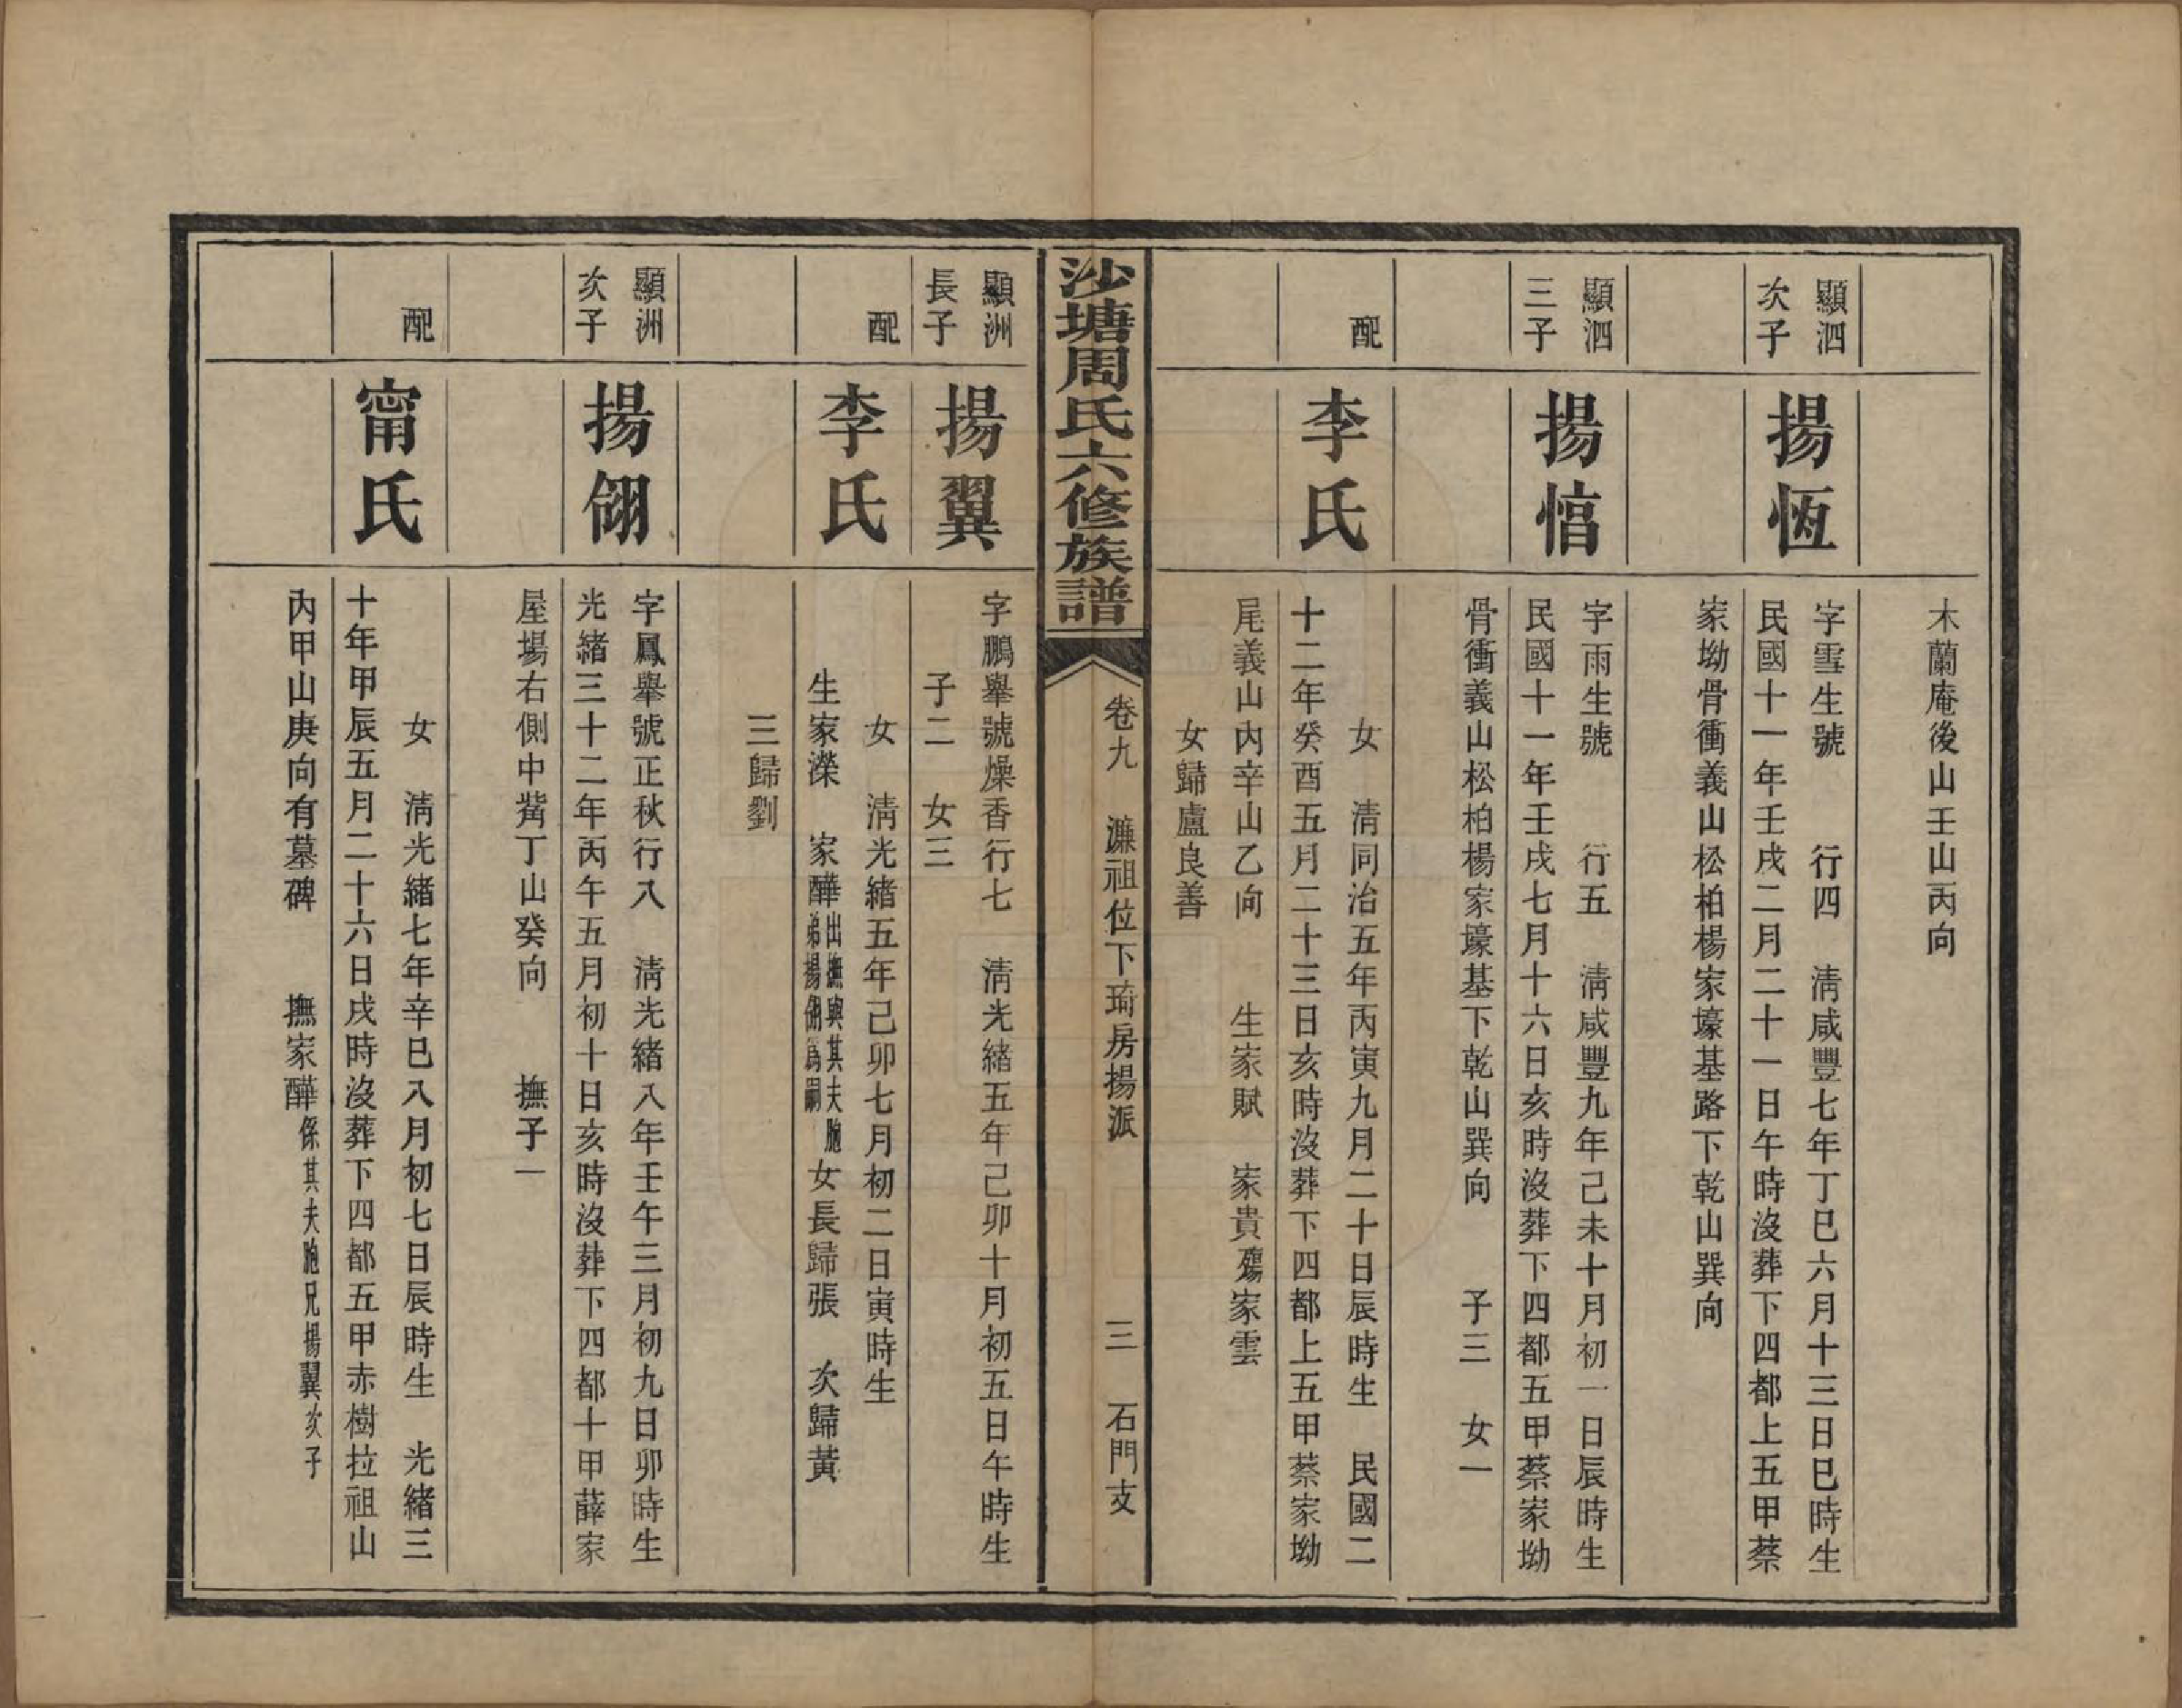 木蘭庵後山壬山丙向
顯泗
次子
揚恆
字雪生號　　行四　清咸豐七年丁巳六月十三日巳時生
民國十一年壬戌二月二十一日午時沒葬下四都上五甲蔡
家坳骨衝義山松柏楊家壕基路下乾山巽向
顯泗
三子
揚悎
字雨生號　　行五　清咸豐九年己未十月初一日辰時生
民國十一年壬戌七月十六日亥時沒葬下四都五甲蔡家坳
骨衝義山松柏楊家壕基下乾山巽向　　子三　女一
配
李氏
女　清同治五年丙寅九月二十日辰時生　民國二
十二年癸酉五月二十三日亥時沒葬下四都上五甲蔡家坳
尾義山內辛山乙向　　生家賦　家貴殤家雲
女歸盧良善
沙塘周氏六修族譜
卷九　濂祖位下琦房揚派　　三　石門支
顯洲
長子
揚翼
字鵬舉號燥香行七　清光緒五年己卯十月初五日午時生
子二　女三
配
李氏
女　清光緒五年己卯七月初二日寅時生
生家濚　家鏵出撫與其夫胞弟揚翎爲嗣女長歸張　次歸黃
三歸劉
顯洲
次子
揚翎
字鳳舉號正秋行八　清光緒八年壬午三月初九日卯時生
光緒三十二年丙午五月初十日亥時沒葬下四都十甲薛家
屋場右側中嵴丁山癸向　　撫子一
配
甯氏
女　清光緒七年辛巳八月初七日辰時生　光緒三
十年甲辰五月二十六日戌時沒葬下四都五甲赤樹拉祖山
內甲山庚向有墓碑　　撫家鏵係其夫胞兄揚翼次子